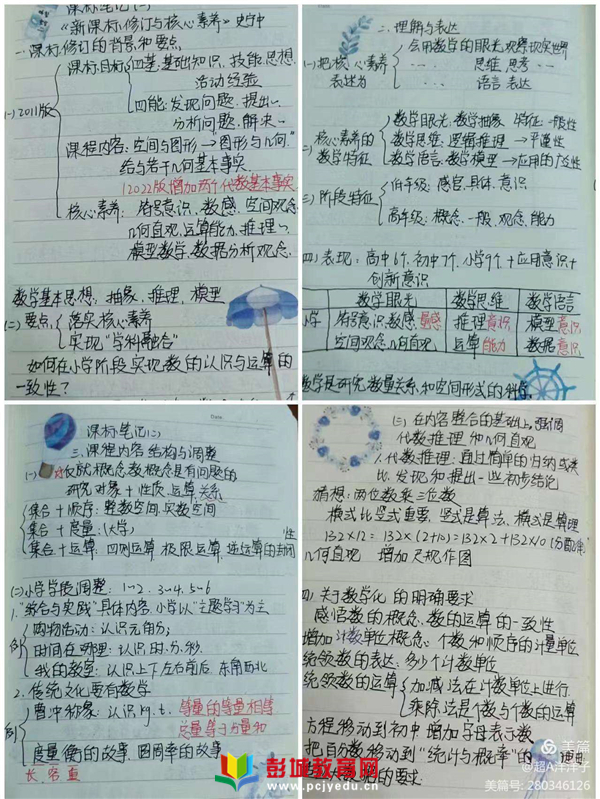 课标笔记(一)
《新课标修订与核心素养》史宁中
一.课标修订的背景和要点
(一)2011版
课标目标
四基:基础知识、技能、思想、
活动经验
四能:发现问题、提出~、
分析问题、解决~
课程内容:空间与图形→图形与几何."
给与若干几何基本事实
(2022版增加两个代数基本事实
核心素养:符号意识、数感、空间观念
几何直观、运算能力、推理~
模型数学、数据分析观念.
数学基本思想:抽象、推理、模型
(二)要点
落实核心素养
实现"学科融合"
如何在小学阶段实现数的认识与运算的
一致性?
二.理解与表达
(一)把核心素养
表达为
会用数学的眼光观察现实世界
思维 思考
语言 表达
二)核心素养的
数学特征
数学眼光:数学抽象 特征:一般性
数学思维:逻辑推理→严谨性
数学语言:数学模型→应用的广泛性
三)阶段特征
低年级:感官、具体、意识
高年级:概念、一般、观念、能力
四)表现:高中6个,初中7个,小学9个+应用意识+
创新意识
数学眼光 数学思维 数学语言
小学 符号意识、数感、量感 推理意识 模型意识
空间观念、几何直观 运算能力 数据意识
数学是研究数量关系和空间形式的科学.
课标笔记(二)
三.课程内容结构与调整
研究对象+性质、运算、关系
集合+顺序:整数空间、实数空间
集合+度量:(大学)
集合+运算:四则运算 极限运算 逆运算的封闭性
(二)小学学段调整:1~2、3~4、5~6
1."综合与实践"具体内容:小学以"主题学习"为主
例
购物活动:认识元角分;
时间在哪里:认识时.分.秒.
我的教室:认识上下左右前后、东南西北
2.传统文化要有数学
例
曹冲称象:认识kg.t. 等量的等量相等
总量等于分量和
度量衡的故事、圆周率的故事
长 容 重
(三)在内容整合的基础上,强调
代数推理和几何直观
1.代数推理:通过简单的归纳或类
比,发现和提出一些初步结论
猜想:两位数乘三位数
横式比竖式重要,竖式是算法,横式是算理
132×12=132×(2+10)=132×2+132×10(分配律)
几何直观 增加尺规作图
四.关于数学化的明确要求
感悟数的概念、数的运算的一致性
增加计数单位概念:个数和顺序的计量单位
统领数的表达:多少个计数单位
统领数的运算
加减法在计数单位上进行
乘除法是个数与个数的运算
方程移动到初中 增加字母表示数
把百分数移动到"统计与概率"的
大数据的要求
彭城教育网
www.pcjyedu.cn
美篇
@超A洋洋子
美篇号: 280346126